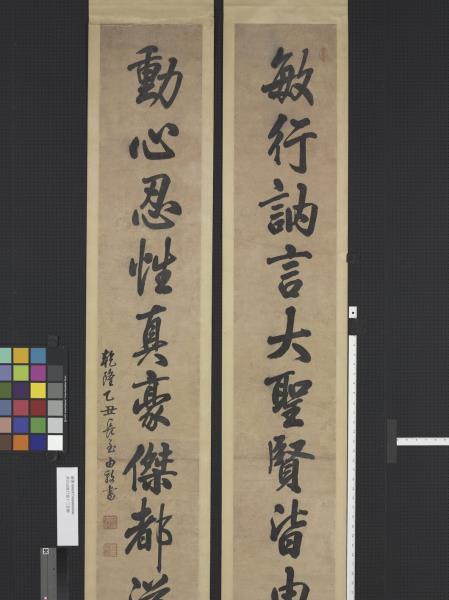 敏行訥言大聖賢皆由
動心忍性真豪傑都從
乾隆乙丑長至由敦書